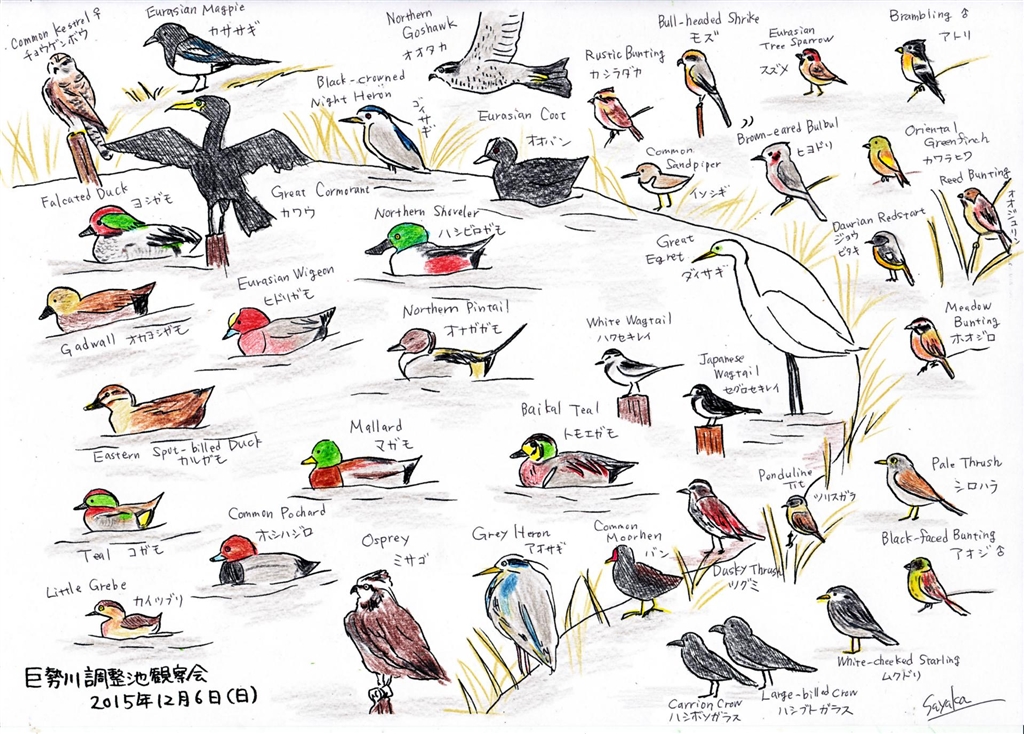 Common Kestrel ♀
チョウゲンボウ
Eurasian Magpie
カササギ
Northern
Goshawk
オオタカ
Bull-headed Shrike
モズ
Eurasian
Tree Sparrow
スズメ
Brambling ♂
アトリ
Rustic Bunting
カシラダカ
Black-crowned
Night Heron
ゴイサギ
Eurasian Coot
オオバン
Common
Sandpiper
イソシギ
Brown-eared Bulbul
ヒヨドリ
Oriental
Greenfinch
カワラヒワ
Reed Bunting
オオジュリン
Falcated Duck
ヨシガモ
Great Cormorant
カワウ
Northern Shoveler
ハシビロガモ
Great
Egret
ダイサギ
Daurian Redstart
ジョウ
ビタキ
Gadwall オカヨシガモ
Eurasian Wigeon
ヒドリガモ
Northern Pintail
オナガガモ
White Wagtail
ハクセキレイ
Japanese
Wagtail
セグロセキレイ
Meadow
Bunting
ホオジロ
Eastern Spot-billed Duck
カルガモ
Mallard
マガモ
Baikal Teal
トモエガモ
Penduline
Tit
ツリスガラ
Pale Thrush
シロハラ
Teal コガモ
Common Pochard
ホシハジロ
Osprey
ミサゴ
Grey Heron
アオサギ
Common
Moorhen
バン
Dusky Thrush
ツグミ
Black-faced Bunting
アオジ ♂
Little Grebe
カイツブリ
White-cheeked Starling
ムクドリ
Carrion Crow
ハシボソガラス
Large-billed Crow
ハシブトガラス
巨勢川調整池観察会
2015年12月6日(日)
Sayaka